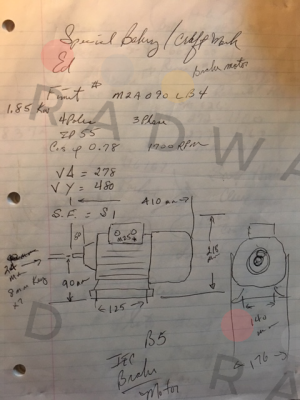 Special Bakery / Craft Mark
Ed
brake motor
Fimet # M2A 090 LB4
1.85 KW
4 Poles 3 Phase
IP 55
Cos φ 0.78 1700 RPM
V Δ = 278
V Y = 480
S.F. = S1
410 mm
218
90 mm
24
8mm Key
125
140
m
176
B5
IEC
Brake
Motor
RADWA
D
RA